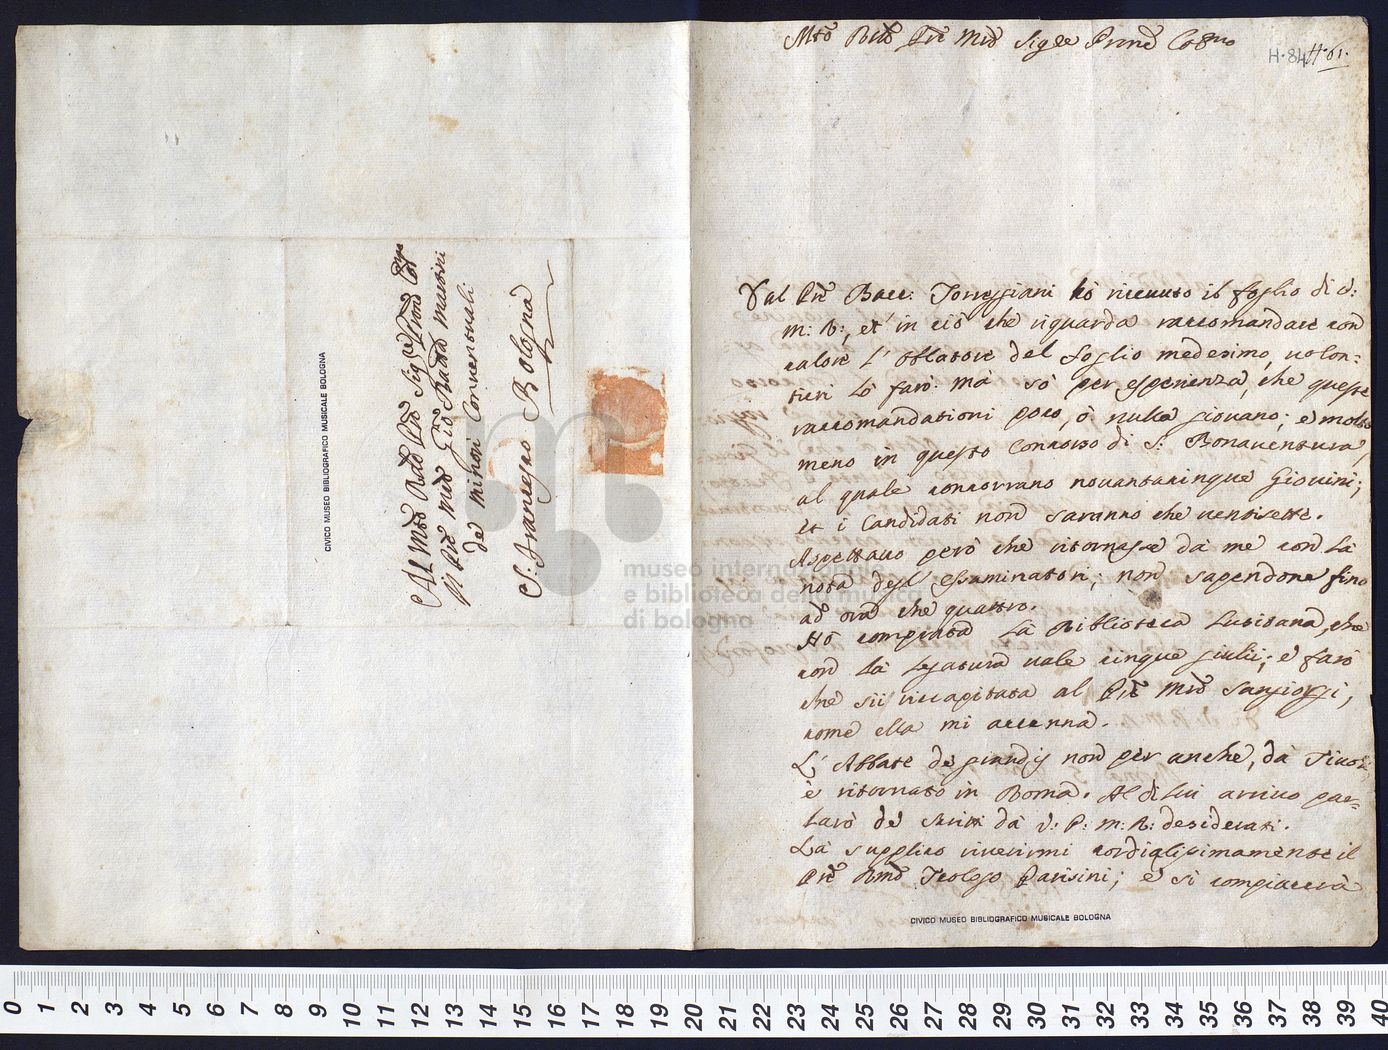 Al Mto Rdo Pre Sig.re e Prone Col.mo
il Pre Mro Gio: Batta Martini
de Minori Conventuali
S. Francesco Bologna
CIVICO MUSEO BIBLIOGRAFICO MUSICALE BOLOGNA
Mto Rdo Pre Mro Sig.re Prone Col.mo
H. 84 H. 61.
Dal Pre Bacc: Torreggiani hò ricevuto il foglio di V:
P. M: R:, et' in ciò che riguarda raccomandare con
calore l' Oblatore del foglio medesimo, volon:
tieri lo farò: mà sò per esperienza, che queste
raccomandationi poco, ò nulla giovano; e molto
meno in questo Concorso di S: Bonaventura,
al quale concorrano novantacinque Giovini;
et i Candidati non saranno che ventisette.
Aspettavo però che ritornasse dà me con la
nota degl' essaminatori, non sapendone fino
ad ora che quattro.
Hò comprata la Biblioteca Lusitana, che
con la legatura vale cinque giulii; e farò
che sii riccapitata al Pre Mro Sangiorgi,
come ella mi accenna.
L' Abbate de grandis non per anche, dà Tivoli
è ritornato in Roma. Al di lui arrivo par=
larò de scritti dà V: P: M: R: desiderati.
La supplico riverirmi cordialissimamente il
Pre Rmo Teologo Parisini; e si compiacerà
CIVICO MUSEO BIBLIOGRAFICO MUSICALE BOLOGNA
museo internazionale
e biblioteca della musica
di bologna
0 1 2 3 4 5 6 7 8 9 10 11 12 13 14 15 16 17 18 19 20 21 22 23 24 25 26 27 28 29 30 31 32 33 34 35 36 37 38 39 40